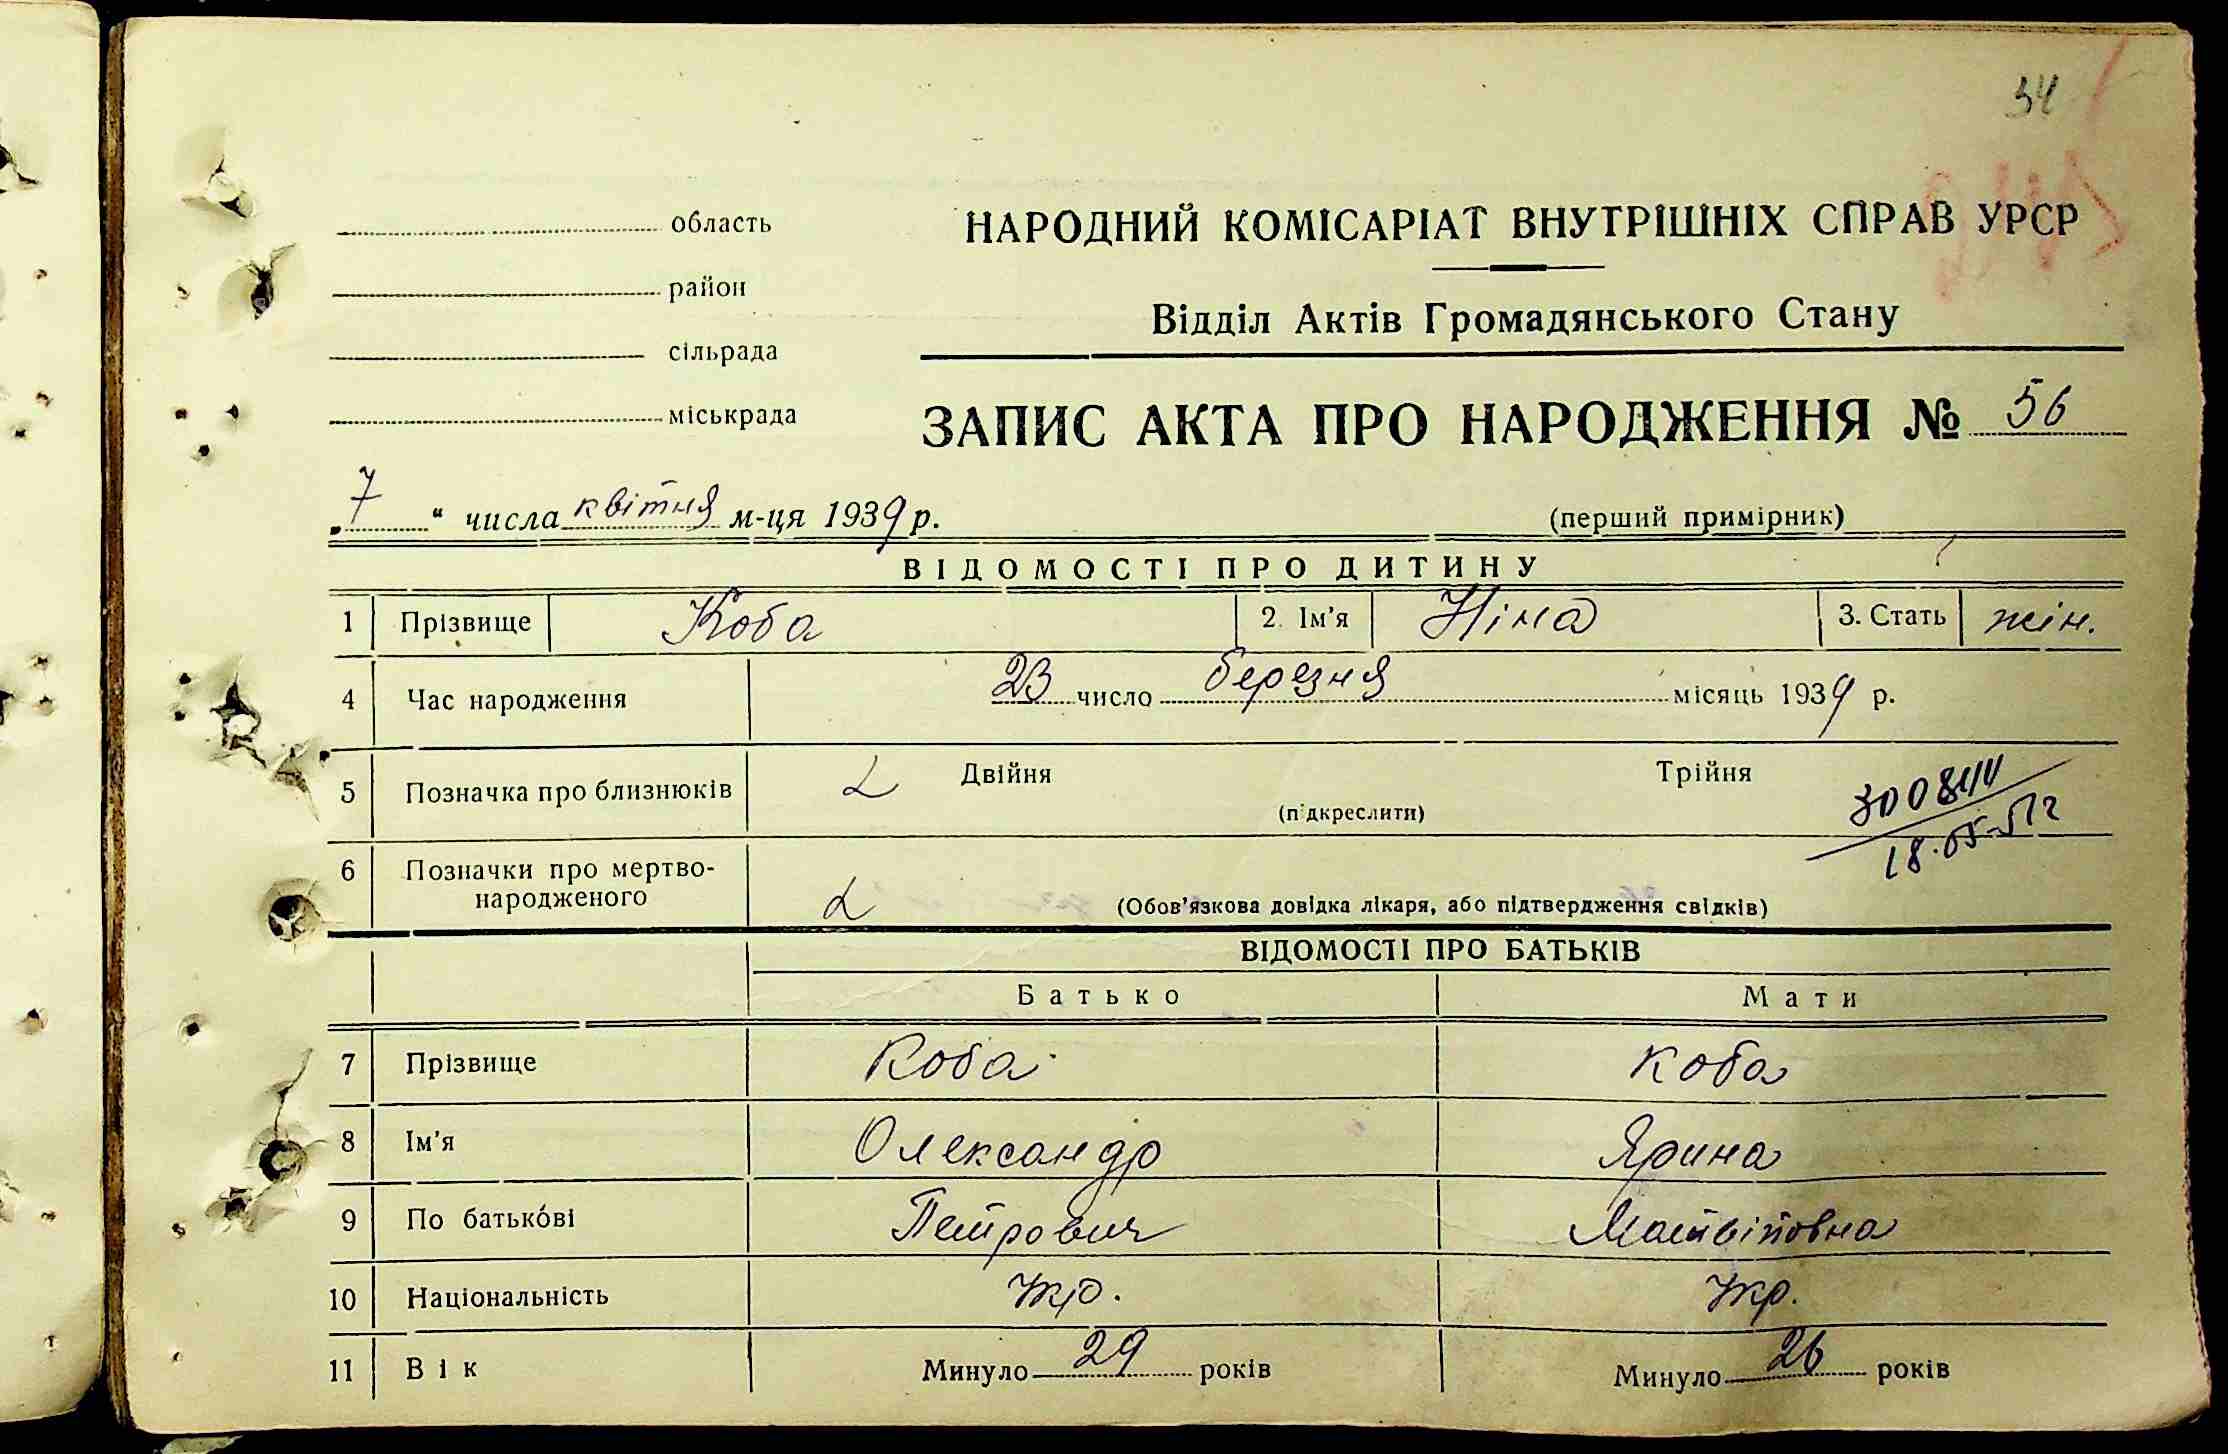 34
область
район
сільрада
міськрада
НАРОДНИЙ КОМІСАРІАТ ВНУТРІШНІХ СПРАВ УРСР
Відділ Актів Громадянського Стану
ЗАПИС АКТА ПРО НАРОДЖЕННЯ № 56
„7“ числа квітня м-ця 1939 р. (перший примірник)
ВІДОМОСТІ ПРО ДИТИНУ
1 Прізвище Коба 2. Ім'я Ніна 3. Стать жін.
4 Час народження 23 число березня місяць 1939 р.
5 Позначка про близнюків Двійня Трійня
(підкреслити)
18.05.51г
6 Позначки про мертво-
народженого (Обов'язкова довідка лікаря, або підтвердження свідків)
ВІДОМОСТІ ПРО БАТЬКІВ
Батько Мати
7 Прізвище Коба Коба
8 Ім'я Олександр Ярина
9 По батькові Петрович Матвіївна
10 Національність Укр. Укр.
11 Вік Минуло 29 років Минуло 26 років